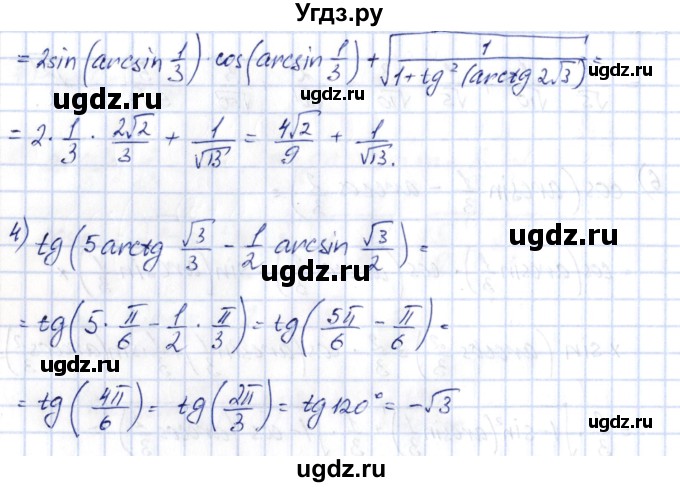 Угдз.ру
= 2sin(arcsin 1/3) · cos(arcsin 1/3) + √(1/(1+tg²(arctg 2√3))) =
ugdz.ru ugdz.ru
= 2 · 1/3 · 2√2/3 + 1/√13 = 4√2/9 + 1/√13.
ugdz.ru ugdz.ru
4) tg(5arctg √3/3 - 1/2 arcsin √3/2) =
ugdz.ru ugdz.ru
= tg(5 · π/6 - 1/2 · π/3) = tg(5π/6 - π/6) =
ugdz.ru ugdz.ru
= tg(4π/6) = tg(2π/3) = tg120° = -√3
ugdz.ru
ugdz.ru